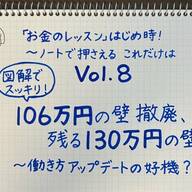 「お金のレッスン」はじめ時！
～ノートで押さえる これだけは
Vol.8
図解で
スッキリ！
106万円の壁 撤廃、
残る130万円の壁
～働き方アップデートの好機？